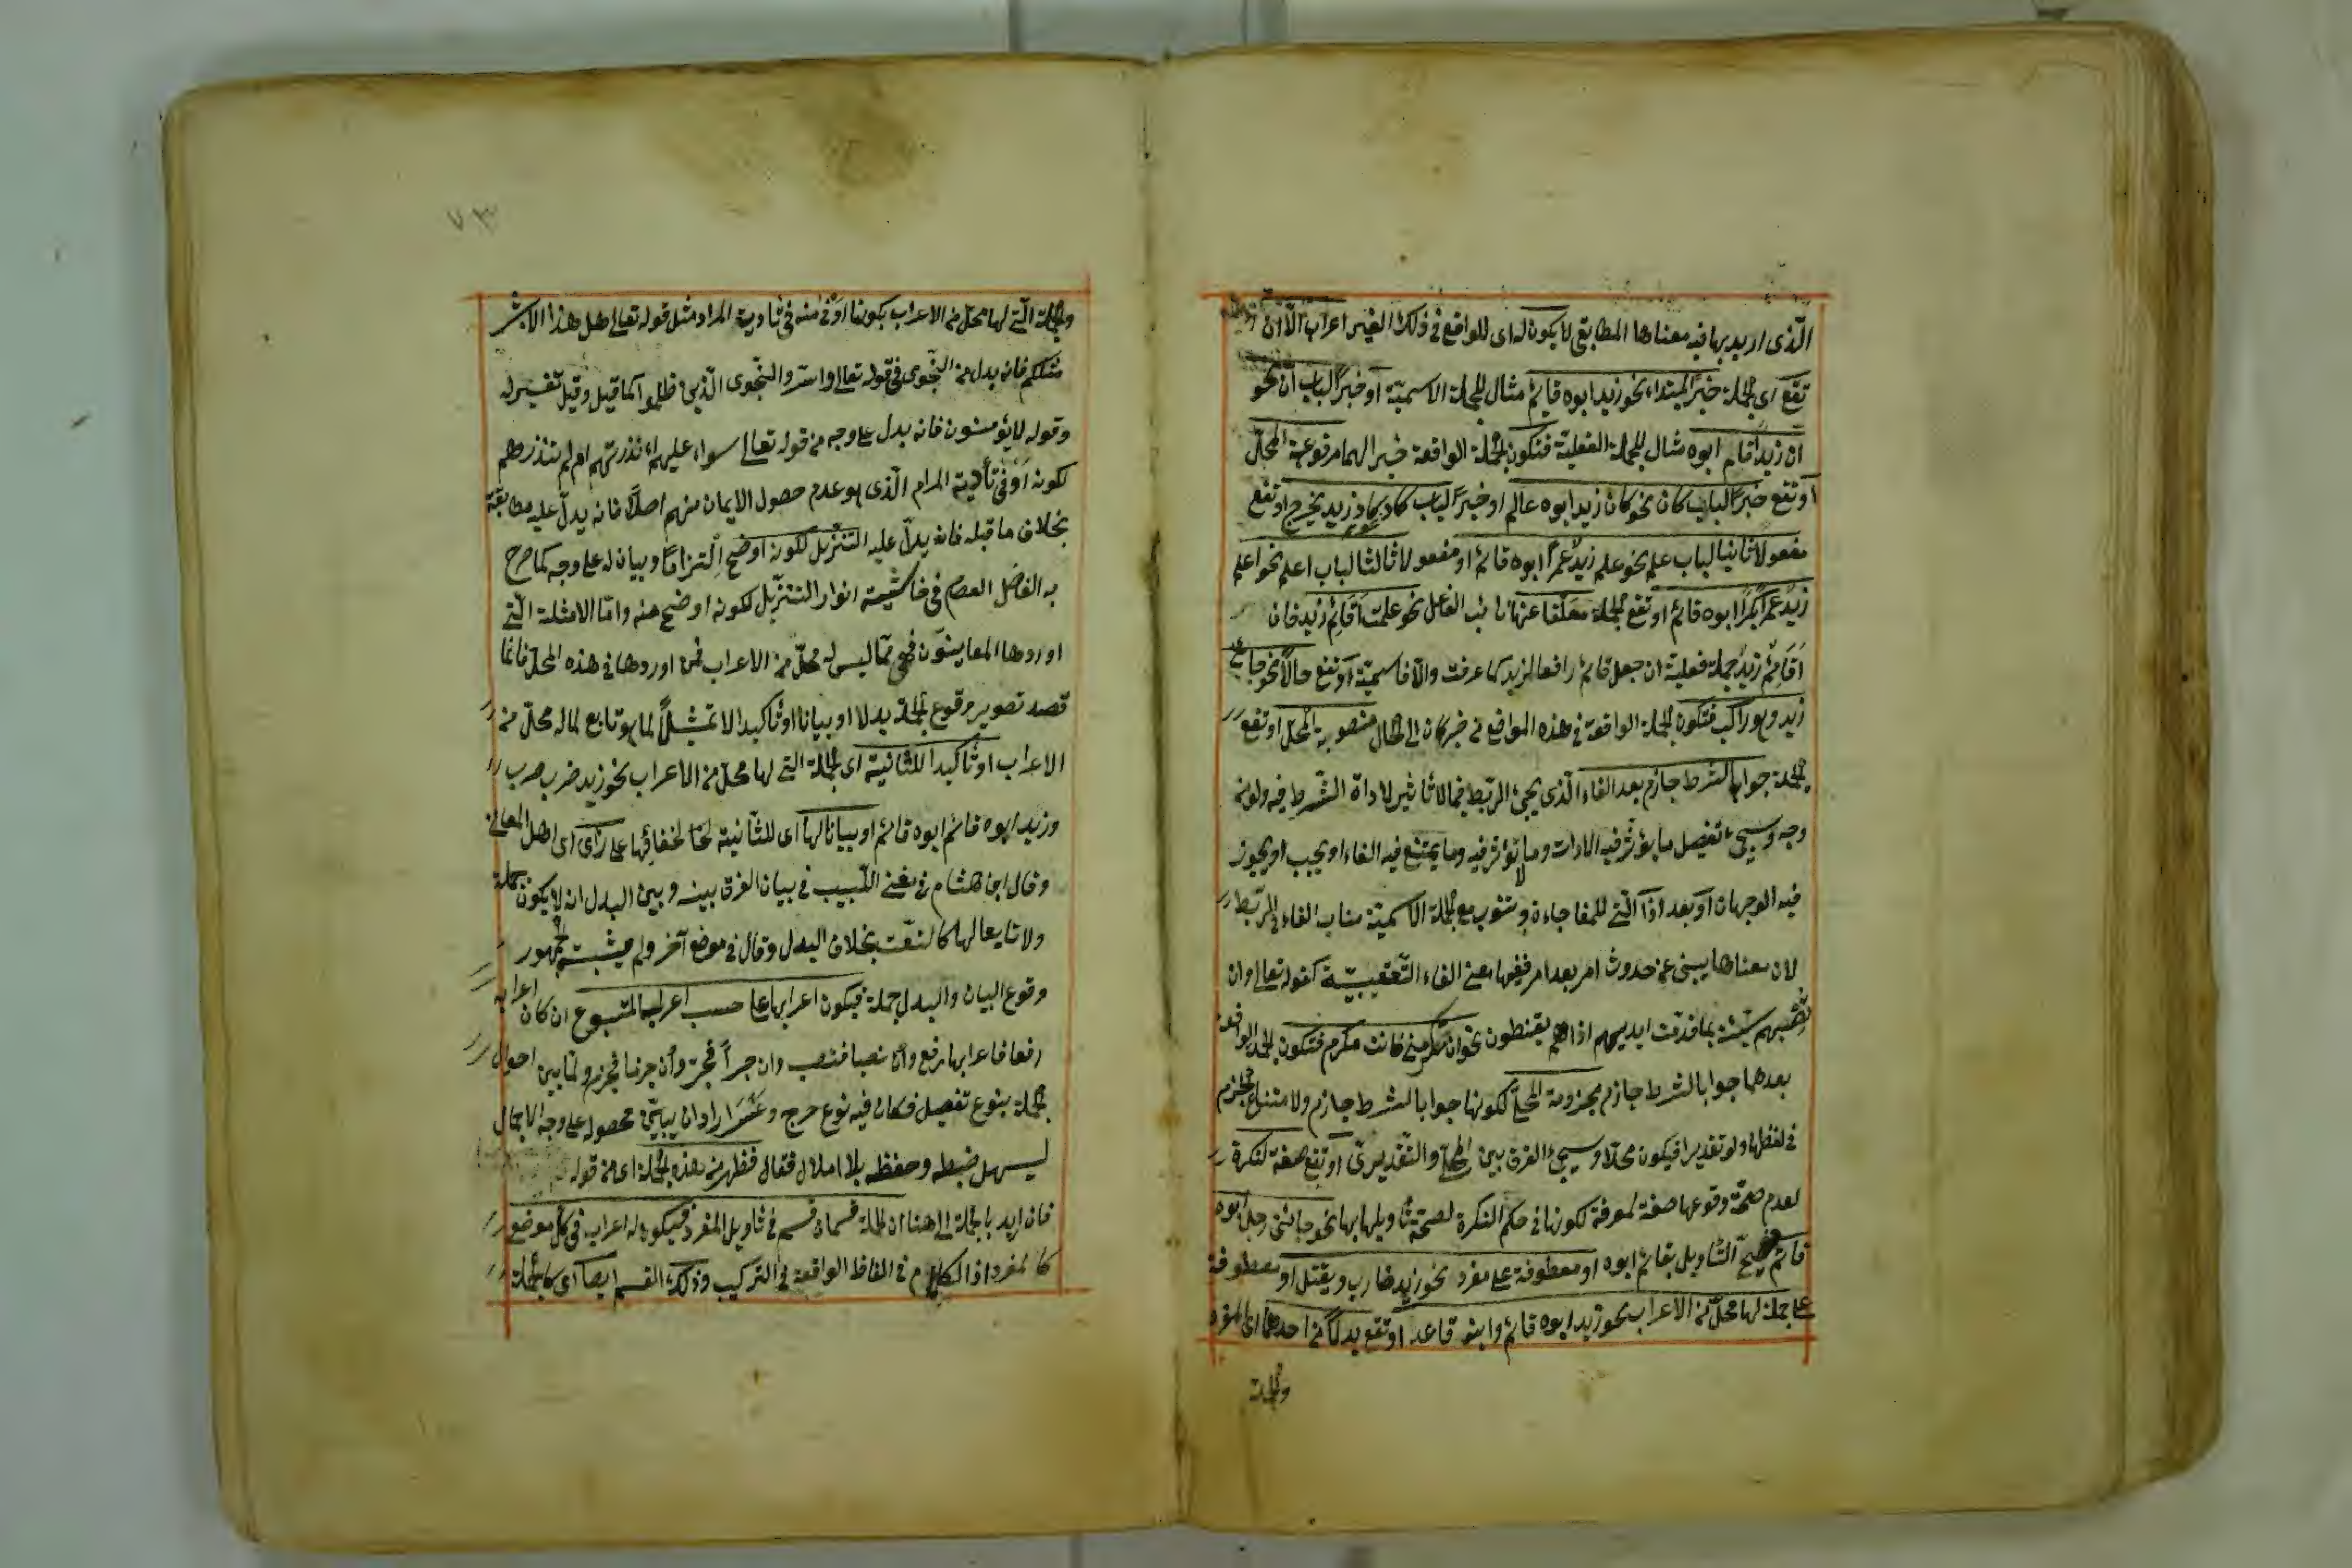 الّذى اريد بها فيه معناها المطابقى لا يكون له اى للواقع فى ذلك الغير اعراب الّا ان
تقع اى الجملة خبرًا لمبتداء نحو زيد ابوه قائم مثال للجملة الاسميّة او خبرًا لباب انّ نحو
ان زيدًا قام ابوه مثال للجملة الفعلية فتكون الجملة الواقعة خبرا لهما مرفوعة المحلّ
او تقع خبرًا لباب كان نحو كان زيد ابوه عالم او خبرًا لباب كاد نحو كاد زيد يخرج او تقع
مفعولا ثانيا لباب علم نحو علم زيدٌ عمرًا ابوه قائم او مفعولا ثالثا لباب اعلم نحو اعلم
زيدٌ عمرًا بكرًا ابوه قائم او تقع الجملة معلّقا عنها نائب الفاعل نحو علمت أقائم زيد فان
أقائمٌ زيدٌ جملة فعلية ان جعل قائم رافعا لزيد كما عرفت والّا فاسميّة او تقع حالًا نحو جاءنى
زيد وهو راكب فتكون الجملة الواقعة فى هذه المواقع من خبر كان الى الحال منصوبة المحل او تقع
الجملة جوابا لشرط جازم بعد الفاء الّذى يجئ لربط فيما لا تأثير لاداة الشّرط فيه ولو من
وجه وسيجئ تفصيل ما يؤثّر فيه الادات وما لا تؤثر فيه وما يمتنع فيه الفاء او يجب او يجوز
فيه الوجهان او بعد اذا الّتى للمفاجاءة وتنوب مع الجملة الاسميّة مناب الفاء فى الربط
لان معناها يبنى عن حدوث امر بعد امر ففيها معنى الفاء التّعقيبيّة كقوله تعالى وان
تصبهم سيّئة بما قدّمت ايديهم اذا هم يقنطون نحو ان تكرمنى فانت مكرم فتكون الجملة الواقعة
بعدهما جوابا لشرط جازم مجزومة المحلّ لكونها جوابا لشرط جازم ولا متناع الجزم
فى لفظها ولو تقديرا فيكون محلّا وسيجئ الفرق بين المحلّى والتقديرىّ او تقع صفة لنكرة
لعدم صحّة وقوعها صفة لمعرفة لكونها فى حكم النكرة لصحّة تأويلها بها نحو جائنى رجل ابوه
قائم فيصحّ التّأويل بقائم ابوه او معطوفة على مفرد نحو زيد ضارب ويقتل او معطوفة
على جملة لها محلّ من الاعراب نحو زيد ابوه قائم وابنه قاعد او تقع بدلًا من احدهما اى المفرد
والجملة
٧٣
والجملة الّتى لها محلّ من الاعراب بكونها اوفى منه فى تأدية المراد مثل قوله تعالى هل هذا الا بشر
مثلكم فانه بدل من النجوى فى قوله تعالى واسرّوا النّجوى الّذين ظلموا كما قيل وقيل تفسير له
وقوله لا يؤمنون فانه بدل على وجه من قوله تعالى سواء عليهم ءانذرتهم ام لم تنذرهم
لكونه اوفى تأدية المرام الّذى هو عدم حصول الايمان منهم اصلًا فانه يدلّ عليه مطابقة
بخلاف ما قبله فانه يدلّ عليه التنزيل لكونه اوضح التزامًا وبيان له على وجه كما صرح
به الفاضل العصام فى حاشية انوار التنزيل لكونه اوضح منه وامّا الامثلة الّتى
اوردها المعانيّون فهى ممّا ليس له محلّ من الاعراب فمن اوردها فى هذه المحلّ فانّما
قصد تصوير وقوع الجملة بدلا او بيانا او تأكيدا لا تمثيلًا لما هو تابع لما له محلّ من
الاعراب او تأكيدا للثانية اى الجملة التى لها محلّ من الاعراب نحو زيد ضرب ضرب
وزيد ابوه قائم ابوه قائم او بيانا لها اى للثّانية لخفائها على رأى اى اهل المعانى
وقال ابن هشام فى مغنى اللّبيب فى بيان الفرق بينه وبين البدل انه لا يكون جملة
ولا تابعا لها كالنعت بخلاف البدل وقال فى موضع آخر ولم يثبت الجمهور
وقوع البيان والبدل جملة فيكون اعرابها على حسب اعراب المتبوع ان كان اعرابه
رفعا فاعرابها رفع وان نصبا فنصب وان جرًا فجرّ وان جزما فجزم ولمّا بين احوال
الجملة بنوع تفصيل فكان فيه نوع حرج وعسر اراد ان يبيّن محصوله على وجه الاجمال
ليسهل ضبطه وحفظه بلا املال فقال فظهر من هذه الجملة اى من قوله
فان اريد بالجملة الى هنا ان الجملة قسمان قسم فى تأويل المفرد فيكون له اعراب فى كل موضع
كالمفرد اذ الكلام فى الفاظ الواقعة فى التركيب وذلك القسم ايضا اى كالجملة